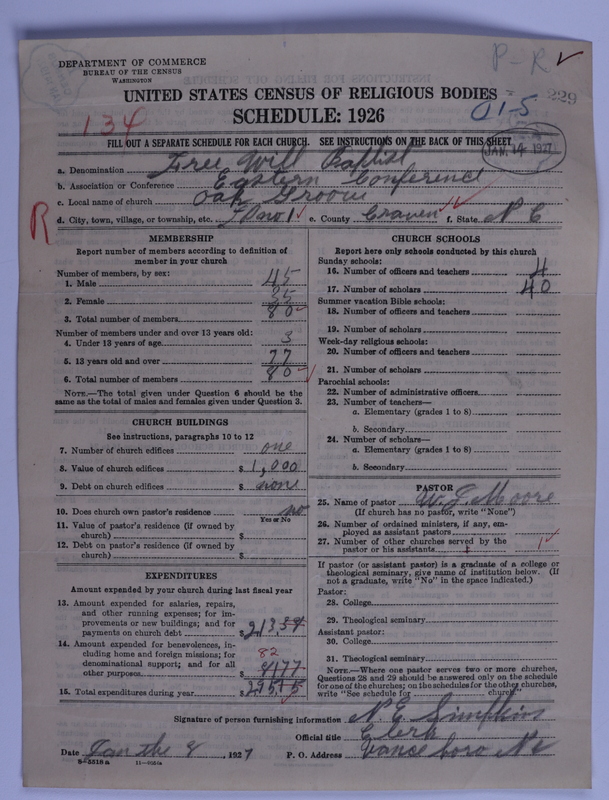 DEPARTMENT OF COMMERCE
BUREAU OF THE CENSUS
WASHINGTON
P-R ✓
UNITED STATES CENSUS OF RELIGIOUS BODIES
SCHEDULE: 1926
229
134
01-5
FILL OUT A SEPARATE SCHEDULE FOR EACH CHURCH. SEE INSTRUCTIONS ON THE BACK OF THIS SHEET
JAN. 14 1927
a. Denomination Free Will Baptist
b. Association or Conference Eastern Conference
c. Local name of church Oak Groove
R
d. City, town, village, or township, etc. No 1 ✓ e. County Craven ✓ f. State N C
MEMBERSHIP
Report number of members according to definition of
member in your church
Number of members, by sex:
1. Male 45
2. Female 35
3. Total number of members 80
Number of members under and over 13 years old:
4. Under 13 years of age 3
5. 13 years old and over 77
6. Total number of members 80 ✓
NOTE.—The total given under Question 6 should be the
same as the total of males and females given under Question 3.
CHURCH BUILDINGS
See instructions, paragraphs 10 to 12
7. Number of church edifices one
8. Value of church edifices $ 1,000
9. Debt on church edifices $ none
10. Does church own pastor's residence no
Yes or No
11. Value of pastor's residence (if owned by
church) $
12. Debt on pastor's residence (if owned by
church) $
EXPENDITURES
Amount expended by your church during last fiscal year
13. Amount expended for salaries, repairs,
and other running expenses; for im-
provements or new buildings; and for
payments on church debt $
14. Amount expended for benevolences, in-
cluding home and foreign missions; for
denominational support; and for all
other purposes $ 82 8177
15. Total expenditures during year $
CHURCH SCHOOLS
Report here only schools conducted by this church
Sunday schools:
16. Number of officers and teachers 4
17. Number of scholars 40
Summer vacation Bible schools:
18. Number of officers and teachers
19. Number of scholars
Week-day religious schools:
20. Number of officers and teachers
21. Number of scholars
Parochial schools:
22. Number of administrative officers
23. Number of teachers—
a. Elementary (grades 1 to 8)
b. Secondary
24. Number of scholars—
a. Elementary (grades 1 to 8)
b. Secondary
PASTOR
25. Name of pastor W. L. Moore
(If church has no pastor, write "None")
26. Number of ordained ministers, if any, em-
ployed as assistant pastors
27. Number of other churches served by the
pastor or his assistants 1 ✓
If pastor (or assistant pastor) is a graduate of a college or
theological seminary, give name of institution below. (If
not a graduate, write "No" in the space indicated.)
Pastor:
28. College
29. Theological seminary
Assistant pastor:
30. College
31. Theological seminary
NOTE.—Where one pastor serves two or more churches,
Questions 28 and 29 should be answered only on the schedule
for one of the churches; on the schedules for the other churches,
write "See schedule for church"
Signature of person furnishing information N. E. Simpkins
Official title Clerk
Date Jan the 8, 1927 P. O. Address Vanceboro NC
8-5518a 11-9054a